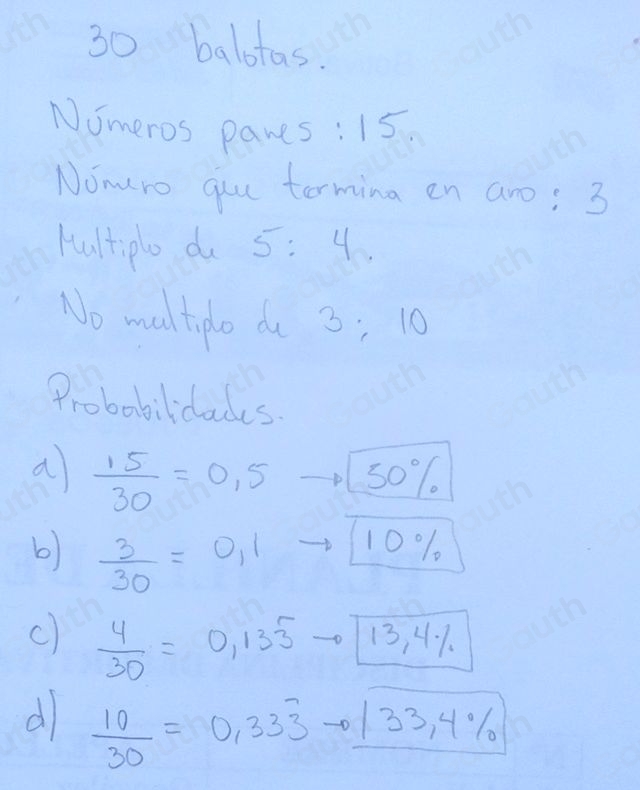 30 balotas.
Números pares : 15.
Número que termina en cero : 3
Multiplo de 5 : 4.
No multiplo de 3 : 10
Probabilidades.
a) 15/30 = 0,5 → 50%
b) 3/30 = 0,1 → 10%
c) 4/30 = 0,133̄ → 13,4%
d) 10/30 = 0,333̄ → 33,4%